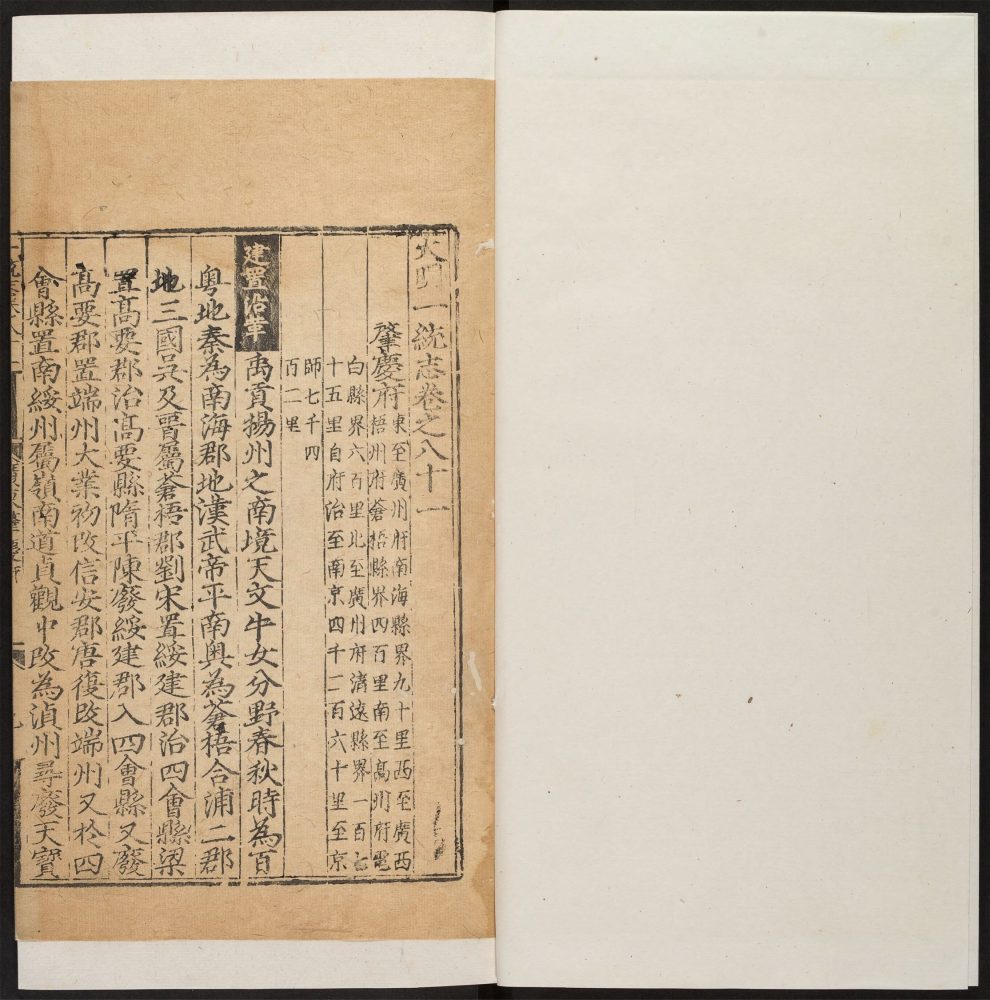 大明一統志卷之八十一
肇慶府
東至廣州府南海縣界九十里西至廣西
梧州府蒼梧縣界四百里南至高州府電
白縣界六百里北至廣州府清遠縣界一百七
十五里自府治至南京四千二百六十里至京
師七千四
百二里
建置沿革
禹貢揚州之南境天文牛女分野春秋時為百
粤地秦為南海郡地漢武帝平南粤為蒼梧合浦二郡
地三國吳及晋屬蒼梧郡劉宋置綏建郡治四會縣梁
置高要郡治高要縣隋平陳廢綏建郡入四會縣又廢
高要郡置端州大業初改信安郡唐復改端州又於四
會縣置南綏州屬嶺南道貞觀中改為湞州尋廢天寶